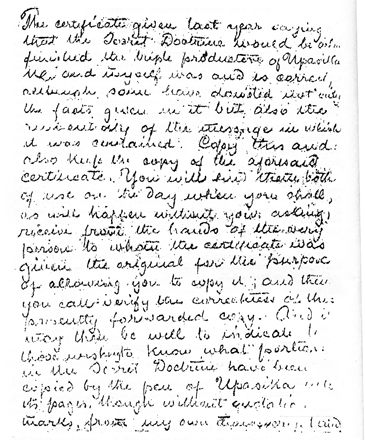 The certificate given last year saying
that the Secret Doctrine would be when
finished the triple production of Upasika
and myself was and is correct,
although some have doubted not only
the facts given in it but also the
authenticity of the message in which
it was contained. Copy this and
also keep the copy of the aforesaid
certificate. You will find them both
of use on the day when you shall,
as will happen without your asking,
receive from the hands of the very
person to whom the certificate was
given the original for the purpose
of allowing you to copy it; and then
you can verify the correctness of this
presently forwarded copy. And it
may then be well to indicate to
those wishing to know what portions
in the Secret Doctrine have been
copied by the pen of Upasika into
its pages, though without quotation
marks, from my own